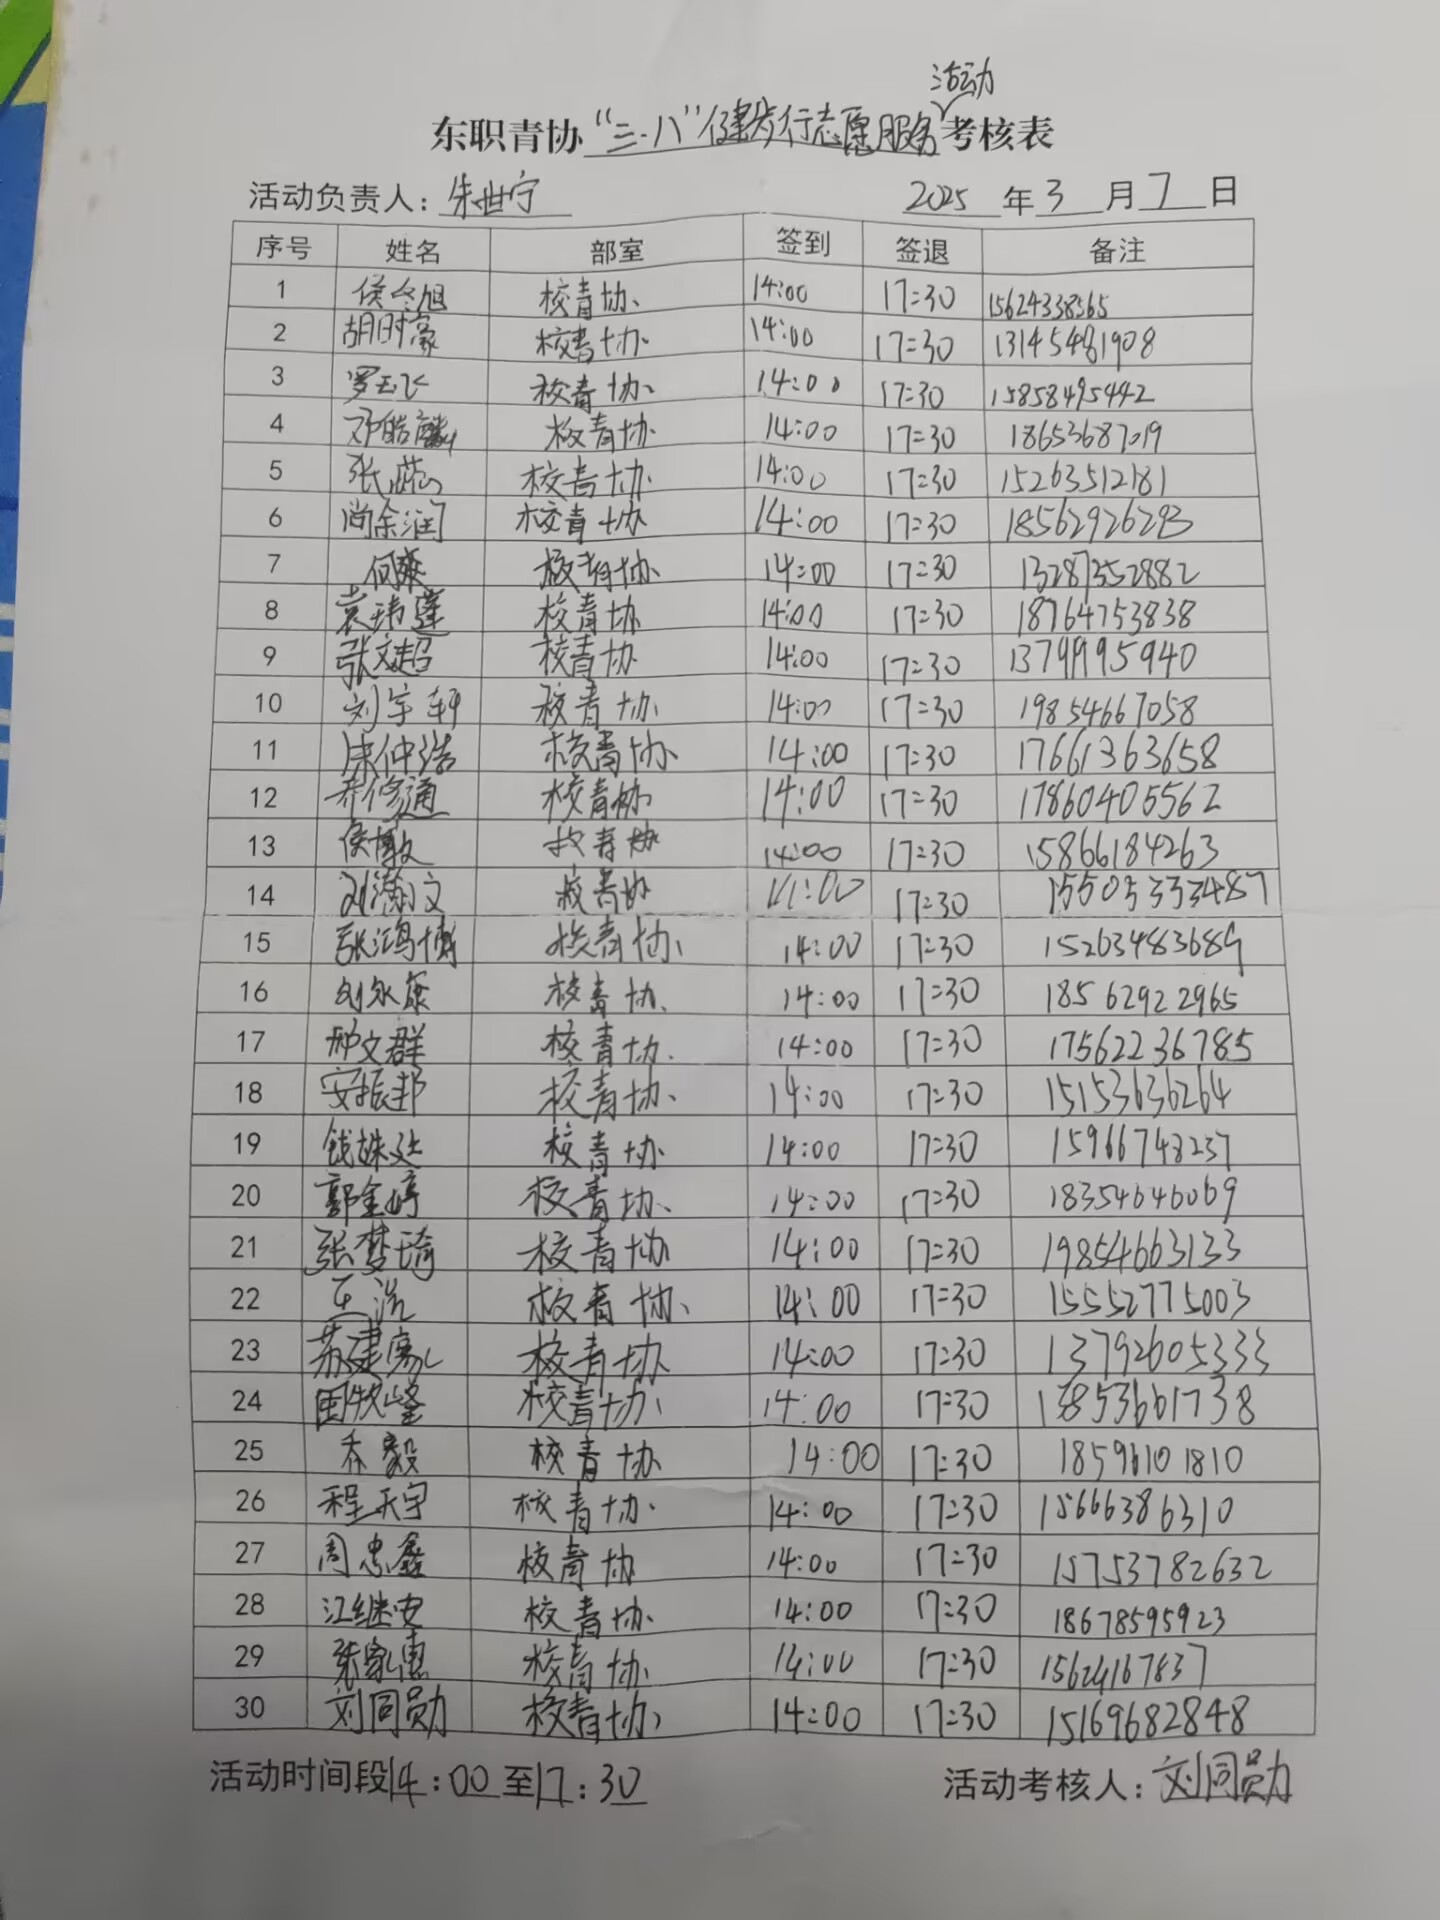 活动
东职青协“三·八”健步行志愿服务考核表
活动负责人：朱世宁 2025年3月7日
序号 姓名 部室 签到 签退 备注
1 侯令旭 校青协 14:00 17:30 15624338565
2 胡时豪 校青协 14:00 17:30 13145481908
3 罗玉飞 校青协 14:00 17:30 15858495442
4 邓皓麟 校青协 14:00 17:30 18653687019
5 张 校青协 14:00 17:30 15263512181
6 尚余润 校青协 14:00 17:30 18562926293
7 何爽 校青协 14:00 17:30 13287352882
8 袁玮莲 校青协 14:00 17:30 18764753838
9 张文超 校青协 14:00 17:30 13799995940
10 刘宇轩 校青协 14:00 17:30 19854667058
11 仲浩 校青协 14:00 17:30 17661363658
12 乔修通 校青协 14:00 17:30 17860405562
13 侯敬 校青协 14:00 17:30 15866184263
14 刘瀚文 校青协 14:00 17:30 155053333487
15 张鸿博 校青协 14:00 17:30 15263483689
16 刘永康 校青协 14:00 17:30 18562922965
17 邢文群 校青协 14:00 17:30 17562236785
18 安振邦 校青协 14:00 17:30 15153636264
19 钱姝 校青协 14:00 17:30 15966748237
20 郭金婷 校青协 14:00 17:30 18354646069
21 张梦琦 校青协 14:00 17:30 19854663133
22 校青协 14:00 17:30 15552775003
23 苏建 校青协 14:00 17:30 13792605333
24 校青协 14:00 17:30 13853661738
25 乔毅 校青协 14:00 17:30 18596101810
26 程天宇 校青协 14:00 17:30 15666386310
27 周忠鑫 校青协 14:00 17:30 15753782632
28 江继安 校青协 14:00 17:30 18678595923
29 张家惠 校青协 14:00 17:30 15624167837
30 刘同勋 校青协 14:00 17:30 15169682848
活动时间段14:00至17:30 活动考核人：刘同勋